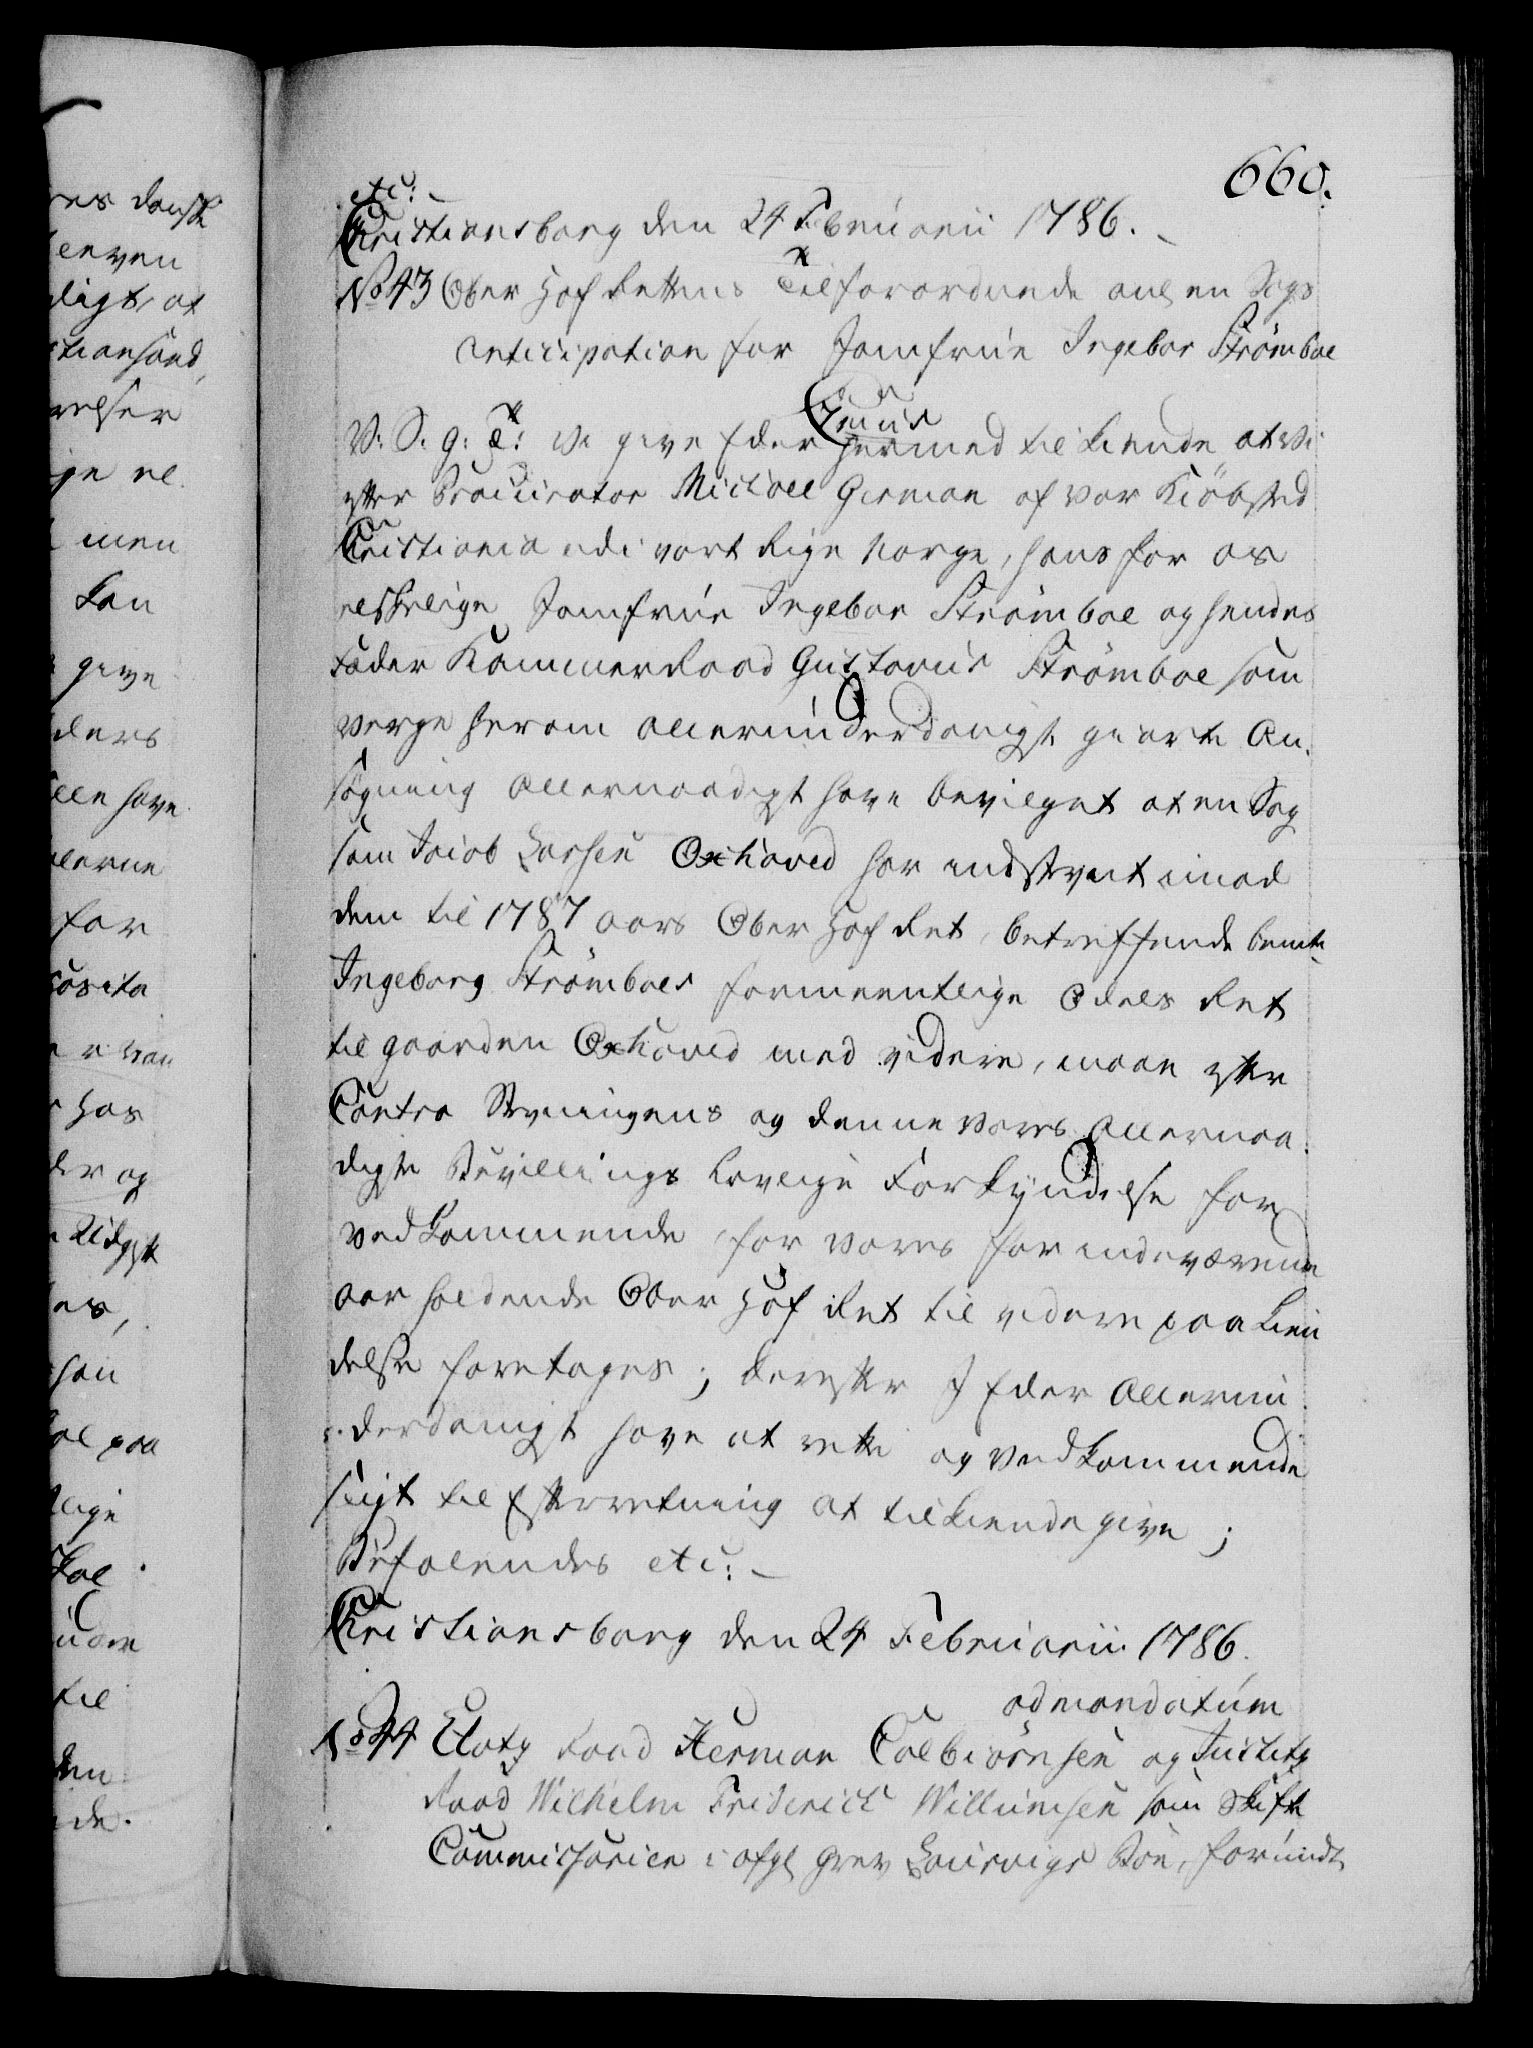 660.
etc:
Christiansborg den 24 Februarii 1786.
No 43 Ober Hof Rettens Tilforordnede ang en Sags
Anticipation for Jomfrue Ingebor Strömboe
Cernus
V. S. g: T: Vi give Eder hermed tilkiende at Vi
efter Procurator Michael German af vor Kiöbsted
Christiania udi vort Rige Norge, hans for os
elskelige Jomfrue Ingebor Strömboe og hendes
Fader Kammerraad Gustavus Strömboe som
Verge herom allerunderdanigst giorte An-
søgning Allernaadigst have bevilget at en Sag
som Jacob Larsen Oxhoved har indstevnt imod
dem til 1787 aars Ober Hof Ret, betreffende bemte
Ingeborg Strömboes formeentlige Odels Ret
til gaarden Oxhoved med videre, maae efter
Contra Stevningens og denne vores Allernaa-
digste Bevillings lovlige Forkyndelse for
vedkommende, for vores for indeværende
aar holdende Ober Hof Ret til videre paakien
delse foretages; derefter I Eder Allerun
derdanigst have at rette og vedkommende
sligt til Efterretning at tilkiendegive;
Befalendes etc:
Christiansborg den 24 Februarii 1786.
ad mandatum
No 44 Etatz Raad Herman Colbiörnsen og Justitz
Raad Wilhelm Friderich Willumsen som Skifte
Commissarier i afgl Grev Laurvigs Boe, forundt
res danske
erven
ligt, at
stiansand,
relser
men
kan
give
ders
lle have
lerne
for
hos
der og
es,
han
al paa
lige
til
den
de.